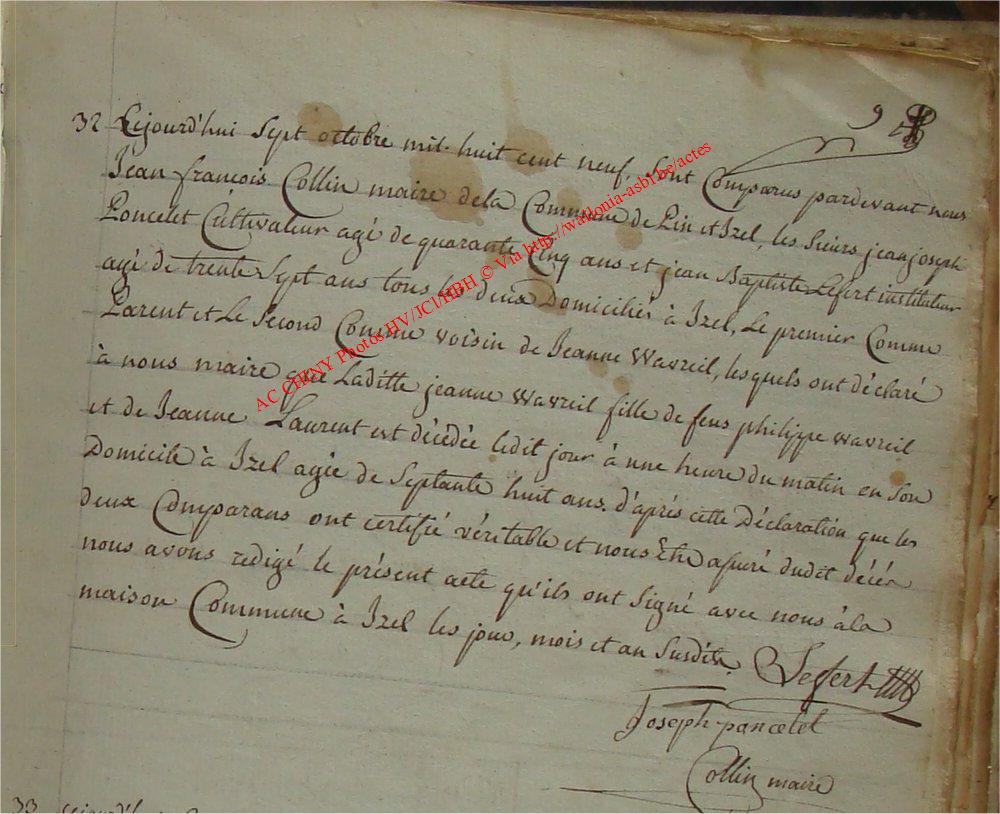 9
32 Cejourd'hui Sept octobre mil huit cent neuf. Sont Comparus pardevant nous
Jean françois Collin maire dela Commune de Pin et Izel, les Sieurs jean joseph
Poncelet Cultivateur agé de quarante Cinq ans et jean Baptiste Lefert instituteur
agé de trente Sept ans tous les deux Domiciliés à Izel, Le premier Comme
Parent et Le Second Comme voisin de Jeanne Wavreil, lesquels ont déclaré
à nous maire que Laditte jeanne Wavreil fille de feus philippe wavreil
et de Jeanne Laurent est décédée ledit jour à une heure du matin en Son
Domicile à Izel agée de Septante huit ans. d'après cette Déclaration que les
deux Comparans ont certifié véritable et nous Etre assuré dudit décès
nous avons redigé le présent acte qu'ils ont Signé avec nous àla
maison Commune à Izel les jour, mois et an Susdits.
Lefert
Joseph poncelet
Collin maire
33 Cejourd'h
AC CHINY Photos HV/JCl/HBH © Via http://wallonia-asbl.be/actes